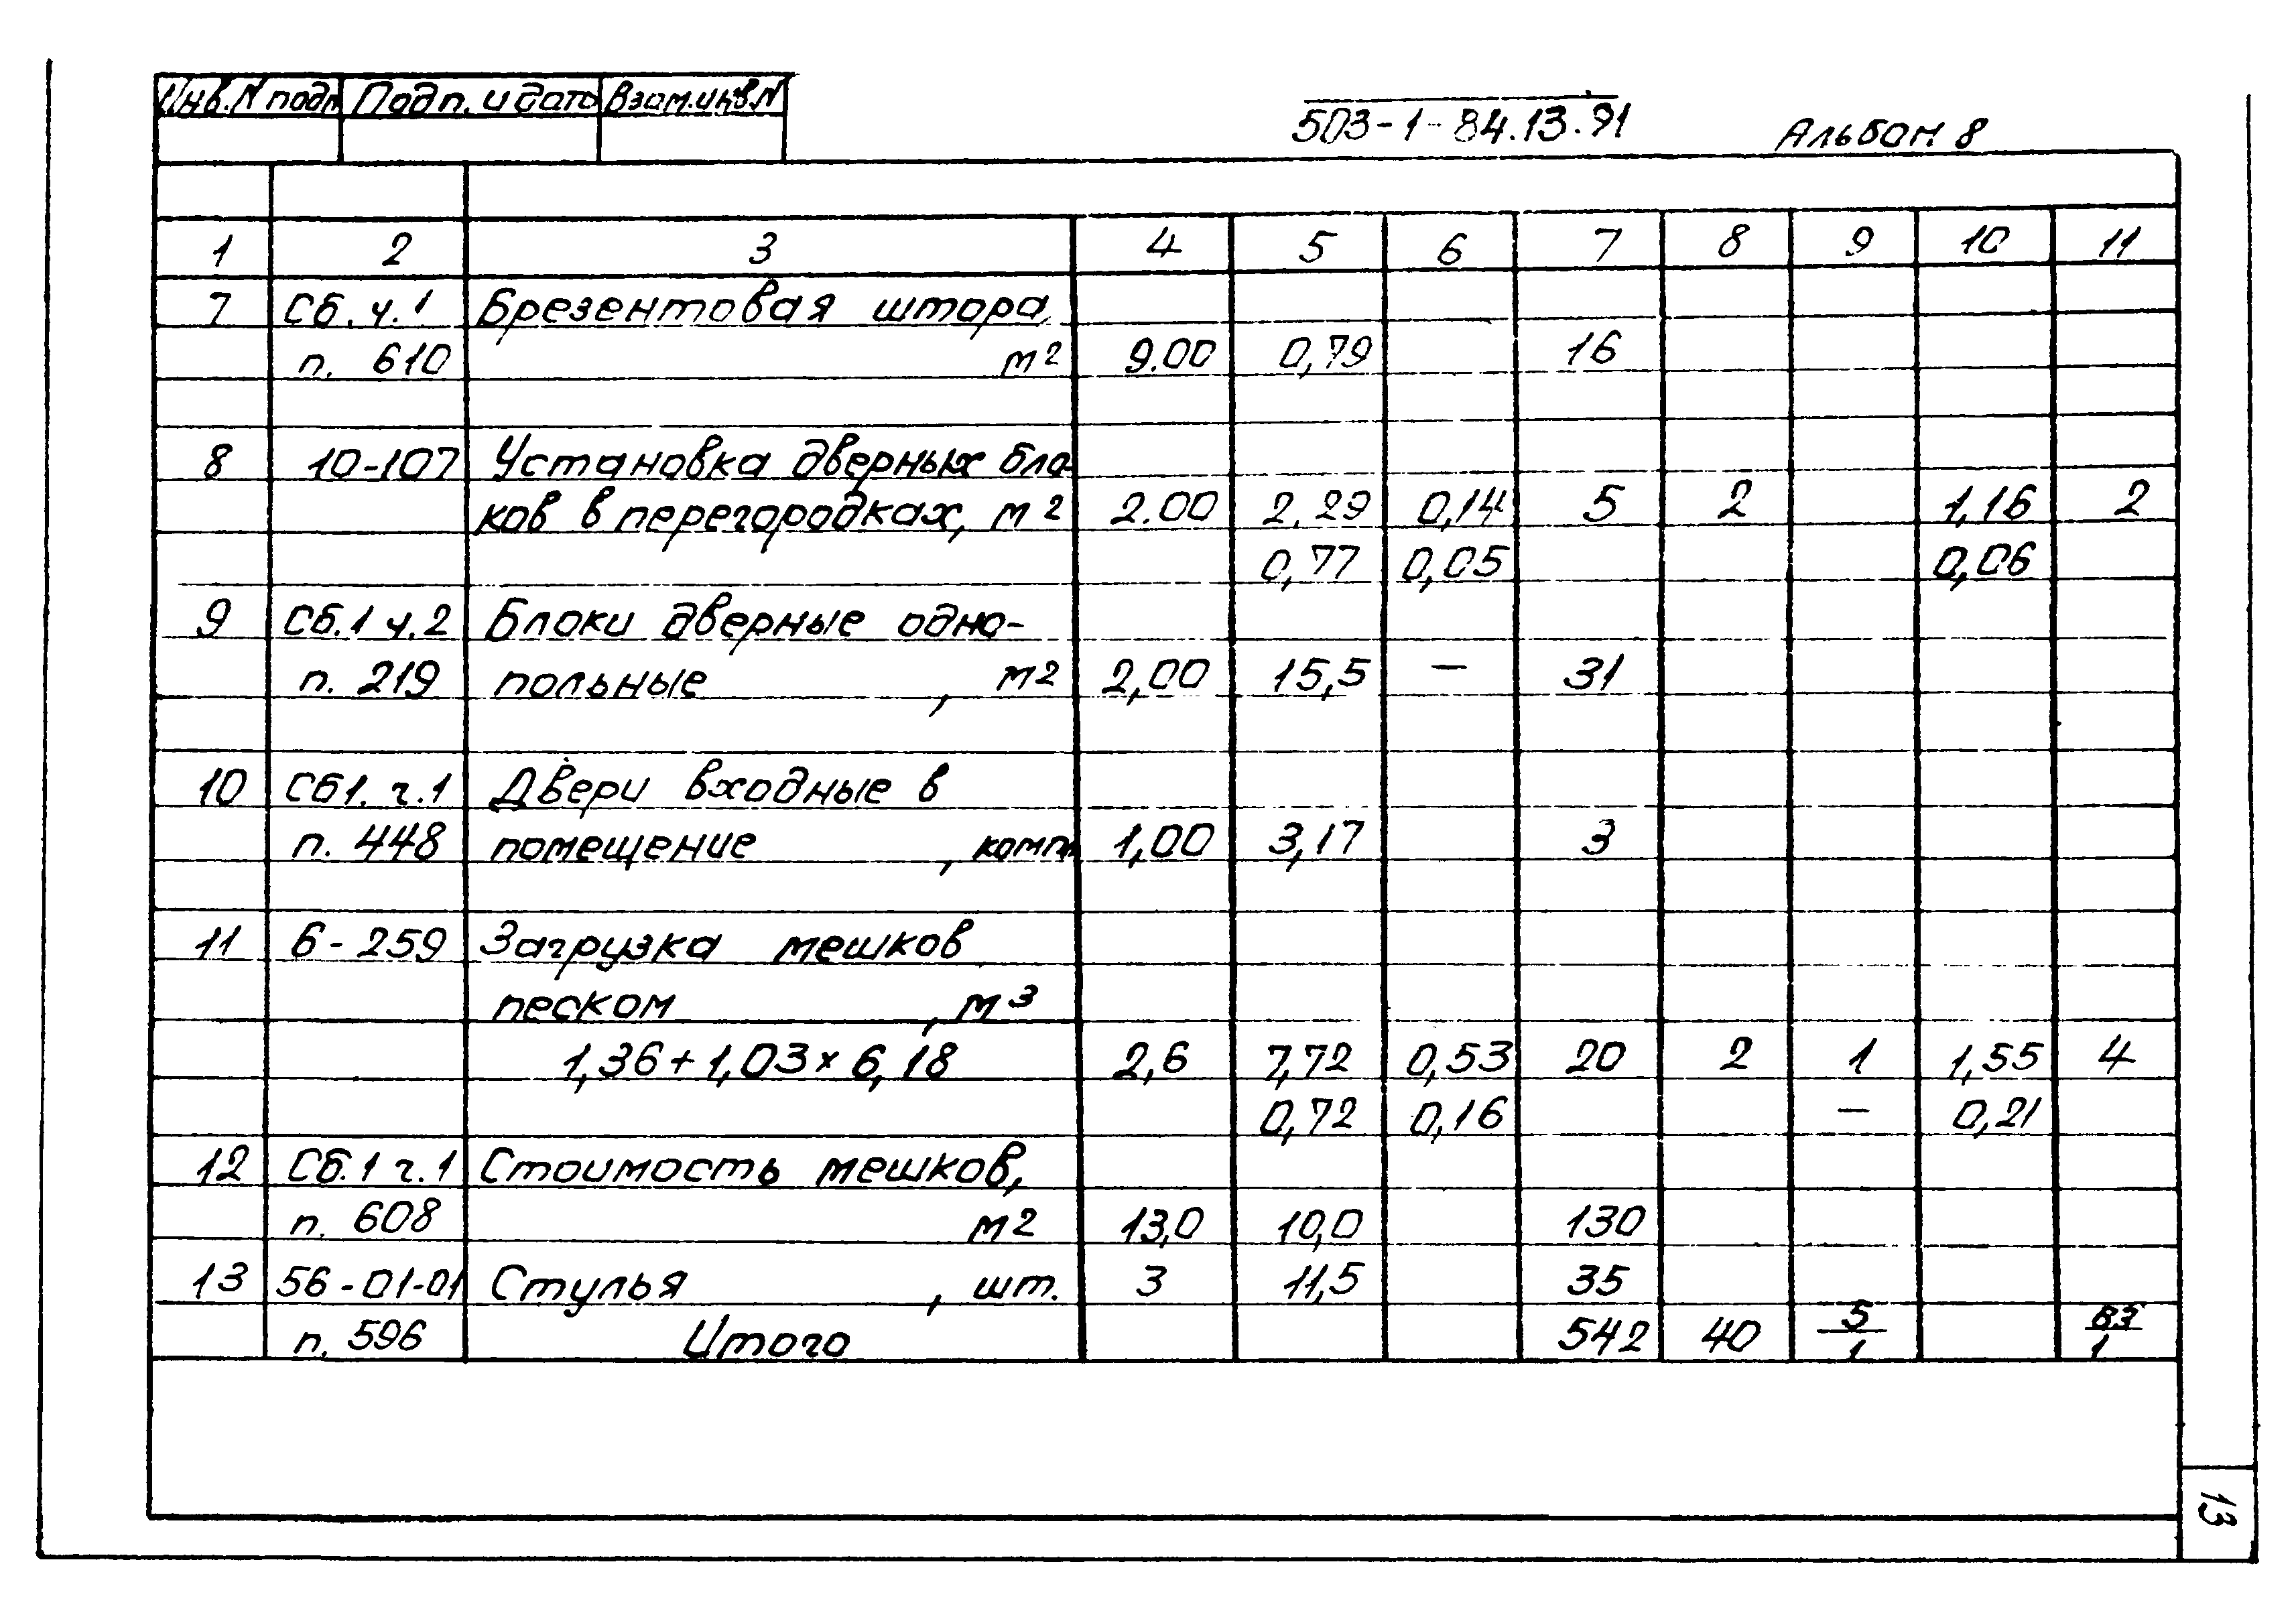 Инв.N подл Подп. и дата Взам.инв.N
503-1-84.13.91 Альбом 8
1 2 3 4 5 6 7 8 9 10 11
7 Сб. ч.1 Брезентовая штора,
п. 610 м2 9.00 0,79 16
8 10-107 Установка дверных бло-
ков в перегородках, м2 2.00 2.29 0,14 5 2 1,16 2
0,77 0,05 0,06
9 Сб.1 ч.2 Блоки дверные одно-
п. 219 польные , м2 2,00 15,5 – 31
10 Сб1. ч.1 Двери входные в
п. 448 помещение , компл 1,00 3,17 3
11 6-259 Загрузка мешков
песком , м3
1,36+1,03×6,18 2,6 7,72 0,53 20 2 1 1,55 4
0,72 0,16 – 0,21
12 Сб.1 ч.1 Стоимость мешков,
п. 608 м2 13,0 10,0 130
13 56-01-01 Стулья , шт. 3 11,5 35
п. 596 Итого 542 40 5/1 /1
13